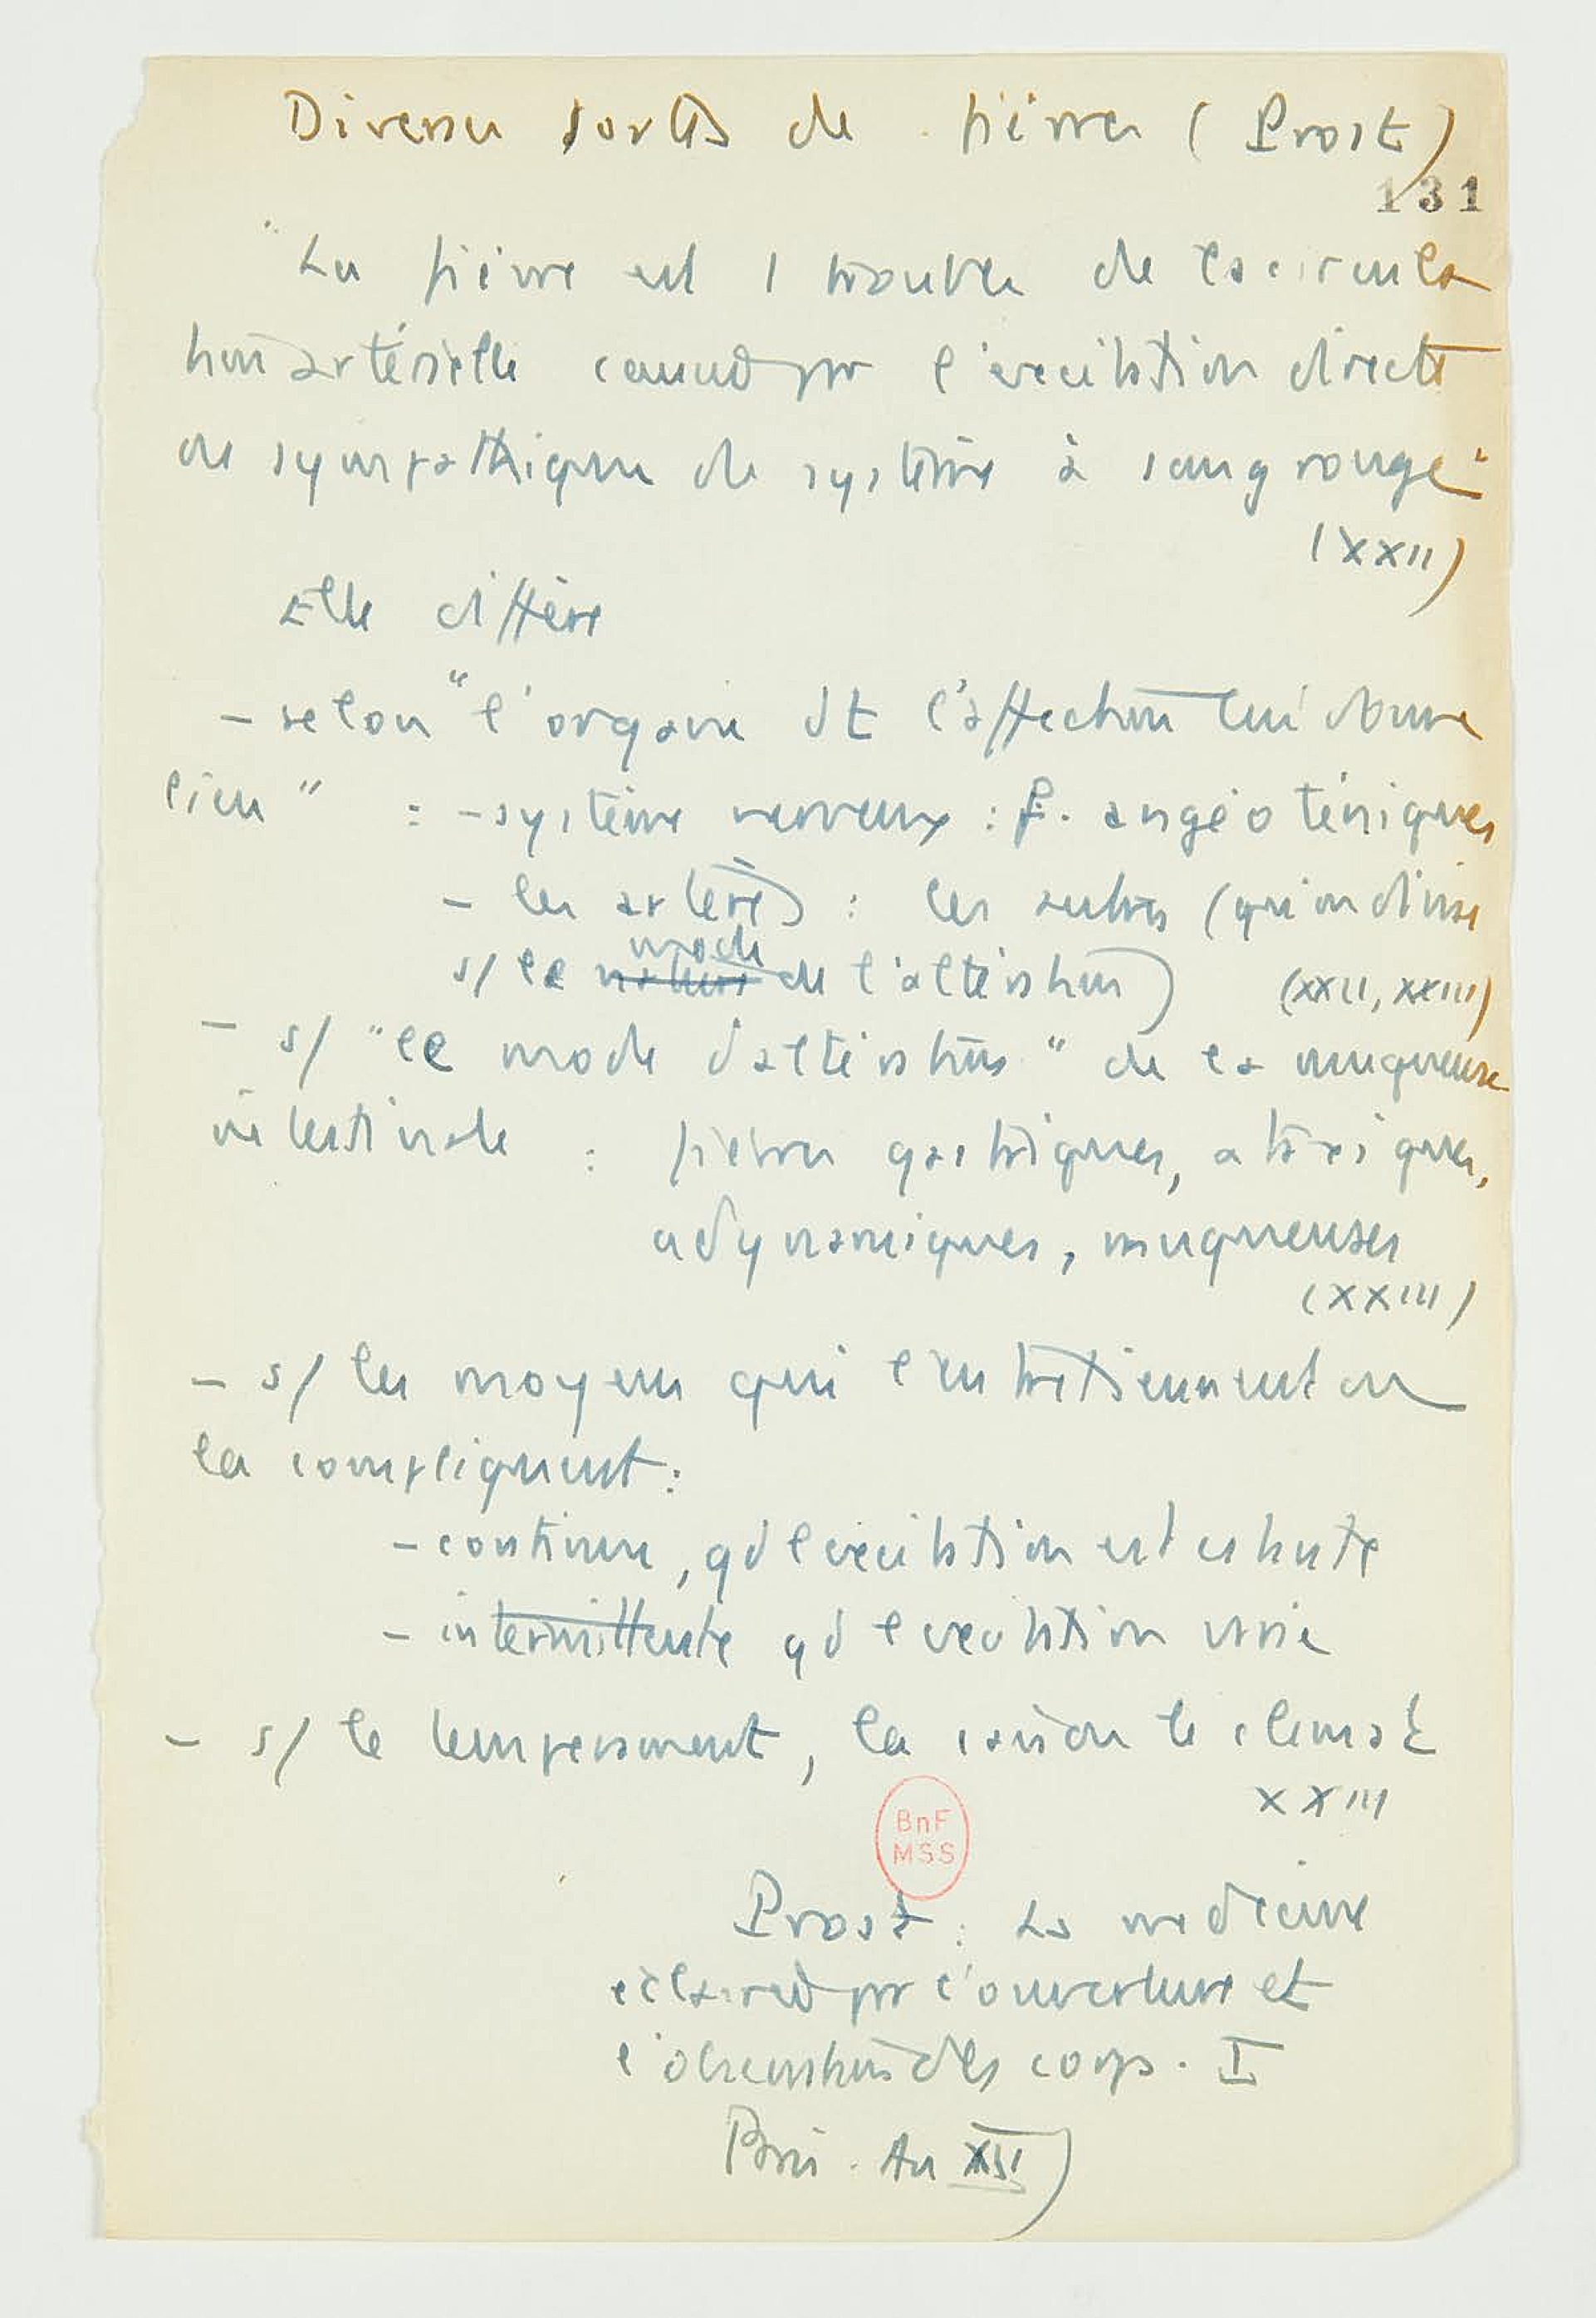 Diverses sortes de fièvres (Prost)
131
"La fièvre est 1 trouble de la circula
tion artérielle causée par l'excitation directe
ou sympathique du système à sang rouge"
(XXII)
Elle diffère
- selon "l'organe dt l'affection lui donne
lieu" : - système nerveux : f. angéoténiques
- les artères : les autres (qu'on divise
s/ le nature mode de l'altération) (XXII, XXIII)
- s/ "le mode d'altération" de la muqueuse
intestinale : fièvres gastriques, ataxiques,
adynamiques, muqueuses
(XXIII)
- s/ les moyens qui l'entretiennent ou
la compliquent :
- continue, qd l'excitation est
- intermittente qd l'excitation varie
- s/ le tempérament, la saison le climat
XXIII
BnF
MSS
Prost : La médecine
éclairée par l'ouverture et
l'observation des corps. I
Paris. An XII)